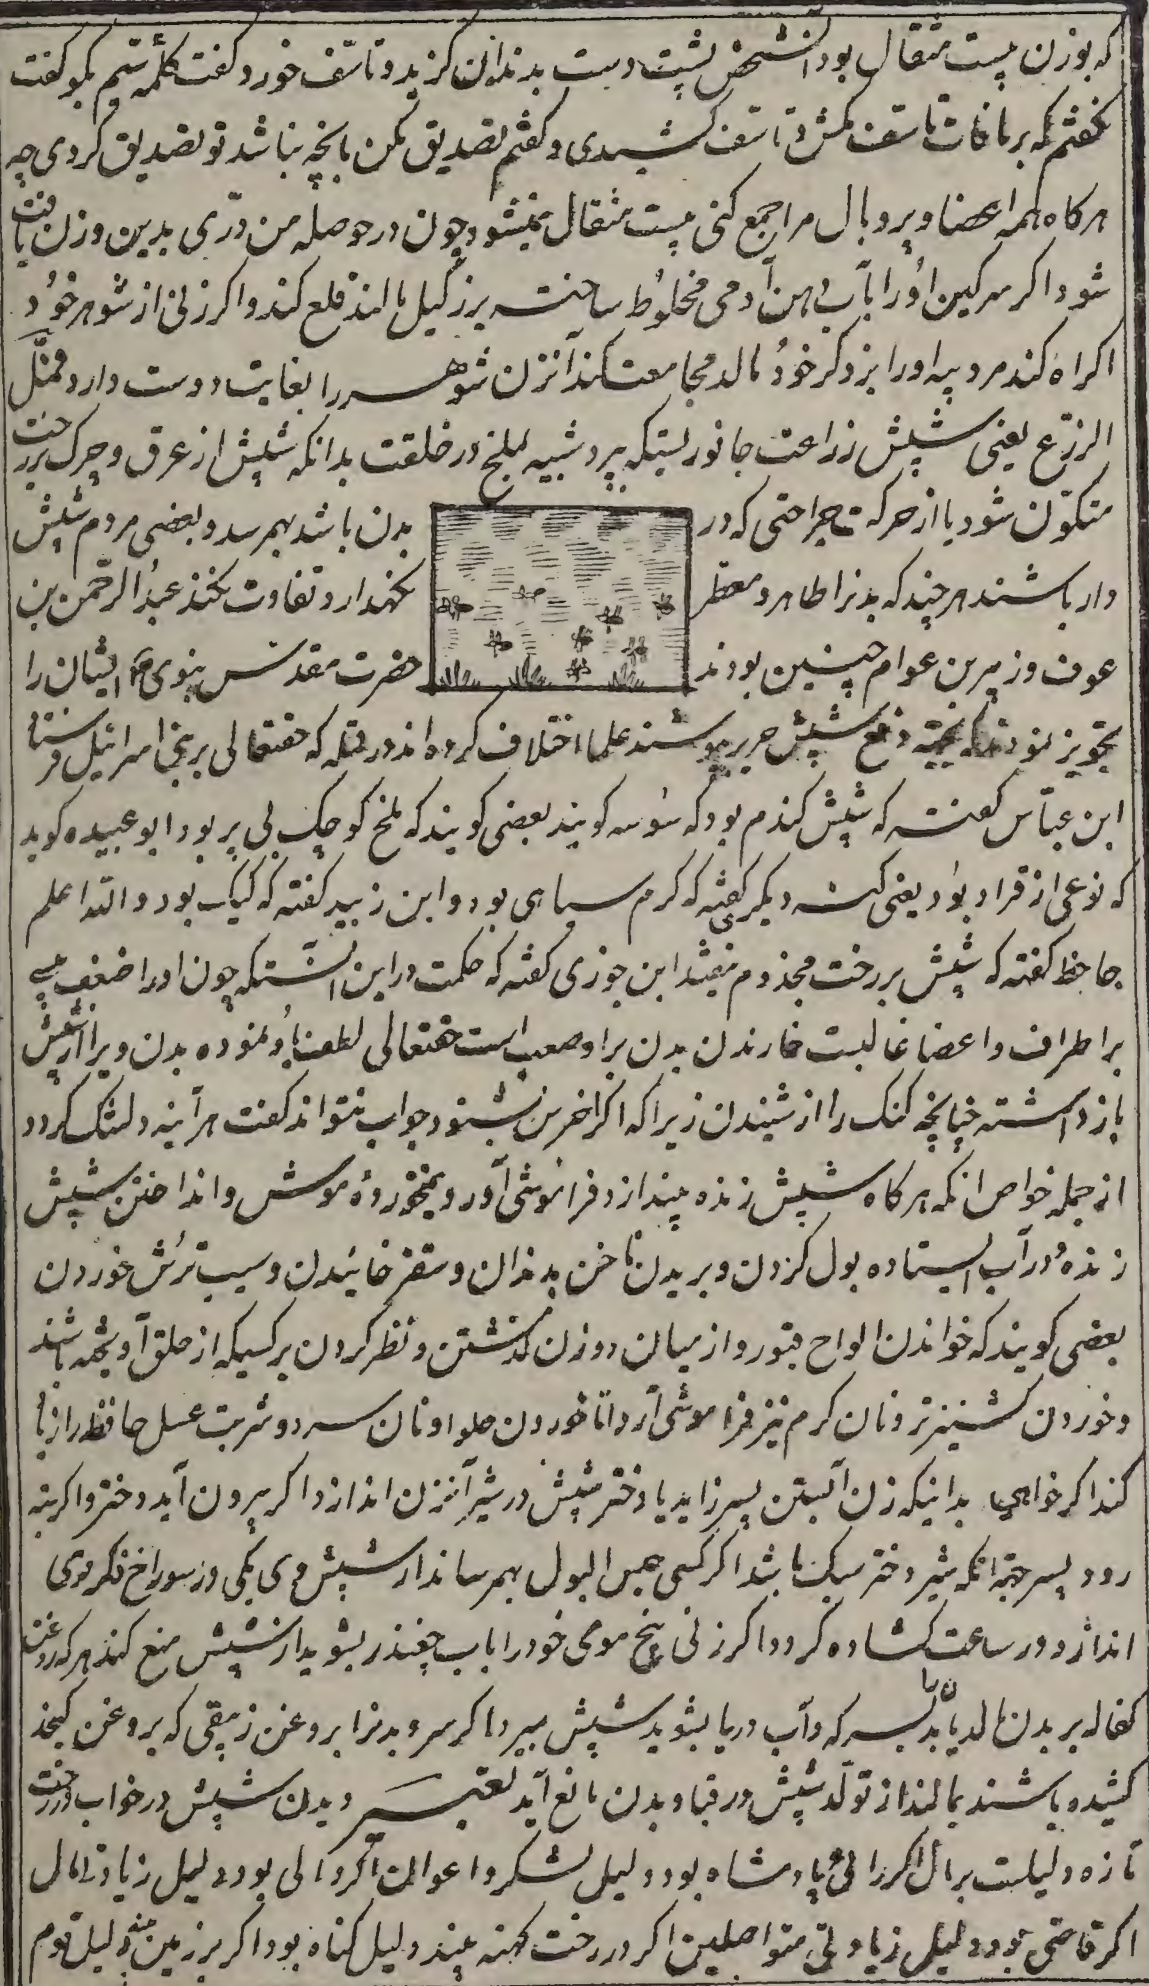 که بوزن بیست مثقال بود آنشخص پشت دست بدندان گزید و تاسف خورد و گفت کلمه سیم بگو گفت
نگفتم که برمافات تاسف مکش و تاسف کشیدی و گفتم تصدیق مکن بانچه نباشد تو تصدیق کردی چه
هرکاه همه اعضا و پر و بال مرا جمع کنی بیست مثقال نمیشود چون در حوصله من درّی بدین وزن یافت
شود اکر سرکین او را باآب دهن آدمی مخلوط ساخته برزکیل مالند قلع کند و اکر زنی از شوهر خود
اکراه کند مرد پیه اورا بر ذکر خود مالد مجامعت کند آنزن شوهر را بغایت دوست دارد قمّل
الزرّع یعنی شپش زراعت جانوریستکه پرد شبیه بملخ در خلقت بدانکه شپش از عرق و چرک بر رخت
متکوّن شود یا از حرکت جراحتی که در بدن باشد بهمرسد و بعضی مردم شپش
دار باشند هرچند که بدنرا طاهر و معطر نکهدارد و تفاوت نکند عبدالرّحمن بن
عوف و زبیر بن عوام چنین بودند حضرت مقدس نبوی ص ایشان را
تجویز نمودند که بجهته دفع شپش حریر پوشند علما اختلاف کرده‌اند در قمّله که حقتعالی بر بنی اسرائیل فرستاد
ابن عبّاس گفته که شپش کندم بود که سوسه کویند بعضی کویند که ملخ کوچک بی پر بود ابو عبیده کوید
که نوعی از قراد بود یعنی کنه دیگر گفته که کرم سیاهی بود و ابن زبید گفته که کیک بود و الله اعلم
جاحظ گفته که شپش بر رخت مجذوم نیفتد ابن جوزی گفته که حکمت در این آنستکه چون او را ضعف
بر اطراف و اعضا غالبست خاریدن بدن بر او صعب است حقتعالی لطف باو نموده بدن ویرا از شپش
باز داشته چنانچه کنک را از شنیدن زیرا که اکر اخرس بشنود و جواب نتواند گفت هرآینه دلتنک گردد
از جمله خواص آنکه هرکاه شپش زنده بیندازد فراموشی آورد و نیمخورده موش و انداختن شپش
زنده و در آب ایستاده بول کردن و بریدن ناخن بدندان و سقز خائیدن و سیب ترش خوردن
بعضی کویند که خواندن الواح قبور و از میان دو زن گذشتن و نظر کردن بر کسیکه از حلق آویخته باشند
و خوردن کشنیز تر و نان کرم نیز فراموشی آرد امّا خوردن حلوا و نان سرد و شربت عسل حافظه را زیاد
کند اکر خواهی بدانیکه زن آبستن پسر زاید یا دختر شپش در شیر آنزن انداز داکر بیرون آید دختر و اکر بته
رود پسر جهة آنکه شیر دختر سبک باشد اکر کسی حبس البول بهمرساند از شپش وی یکی در سوراخ ذکر وی
اندازد در ساعت کشاده گردد اکر زنی بیخ موی خود را باب چغندر بشوید از شپش منع کند هرکه روغن
بر بدن مالد یا بدنرا بسرکه و آب دریا بشوید شپش بمیرد اکر سر و بدنرا بروغن زیبقی که بروغن کنجد
کشیده باشند بمالند از تولّد شپش در قبا و بدن مانع آید تعبیر دیدن شپش در خواب در رخت
تازه دلیلست بر مال اکر رائی پادشاه بود دلیل لشکر و اعوان اکر والی بود دلیل زیادتی مال
اکر قاضی بود دلیل زیادتی متواصلین اکر در رخت کهنه بیند دلیل گناه بود اکر بر زمین بیند دلیل قوم